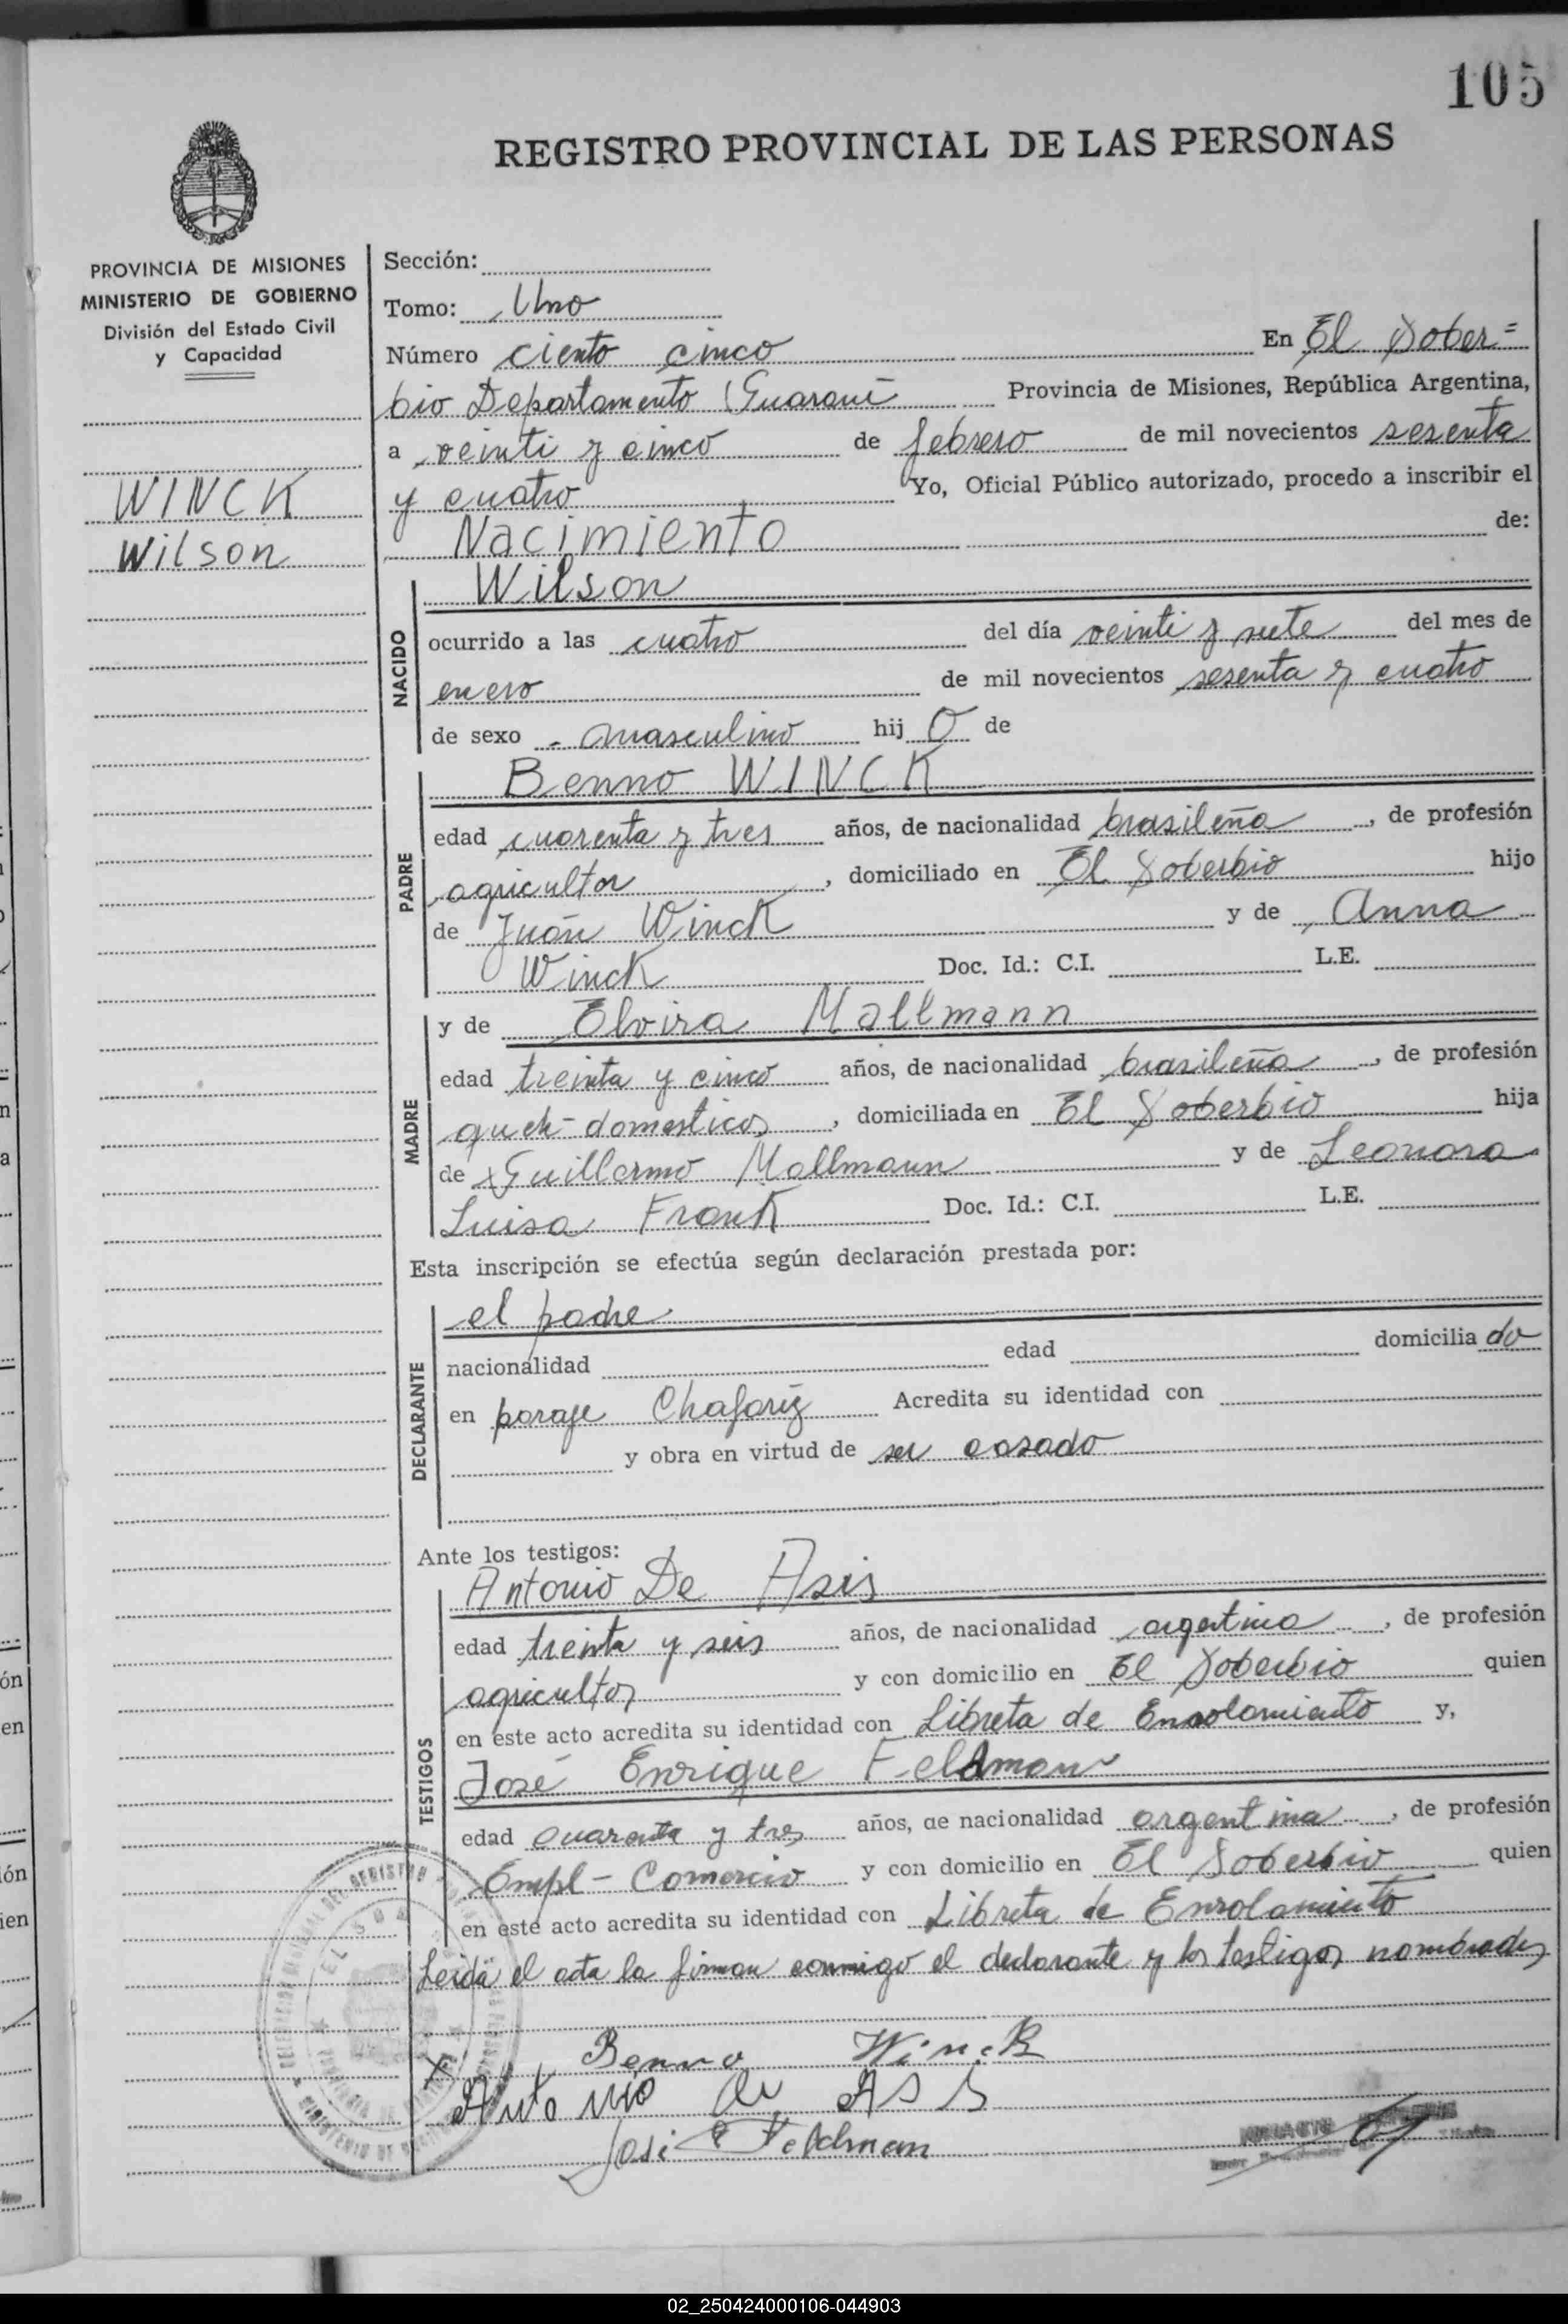 105
REGISTRO PROVINCIAL DE LAS PERSONAS
PROVINCIA DE MISIONES
MINISTERIO DE GOBIERNO
División del Estado Civil
y Capacidad
WINCK
Wilson
Sección:
Tomo: Uno
Número ciento cinco En El Sober=
bio Departamento Guaraní Provincia de Misiones, República Argentina,
a veinti y cinco de febrero de mil novecientos sesenta
y cuatro Yo, Oficial Público autorizado, procedo a inscribir el
Nacimiento de:
NACIDO
Wilson
ocurrido a las cuatro del día veinti y siete del mes de
enero de mil novecientos sesenta y cuatro
de sexo - masculino hij o de
PADRE
Benno WINCK
edad cuarenta y tres años, de nacionalidad brasileña, de profesión
agricultor, domiciliado en El Soberbio hijo
de Juan Winck y de Anna
Winck Doc. Id.: C.I. L.E.
MADRE
y de Elvira Mallmann
edad treinta y cinco años, de nacionalidad brasileña, de profesión
queh- domesticos, domiciliada en El Soberbio hija
de Guillermo Mallmann y de Leonora
Luisa Frank Doc. Id.: C.I. L.E.
Esta inscripción se efectúa según declaración prestada por:
DECLARANTE
el padre
nacionalidad edad domicilia do
en paraje Chafariz Acredita su identidad con
y obra en virtud de ser casado
Ante los testigos:
TESTIGOS
Antonio De Asis
edad treinta y seis años, de nacionalidad argentina, de profesión
agricultor y con domicilio en El Soberbio quien
en este acto acredita su identidad con Libreta de Enrolamiento y,
José Enrique Feldman
edad cuarenta y tres años, de nacionalidad argentina, de profesión
Empl- Comercio y con domicilio en El Soberbio quien
en este acto acredita su identidad con Libreta de Enrolamiento
Leida el acta la firman conmigo el declarante y los testigos nombrados
X Benno Winck
Antonio de ASS
José E Feldman
02_250424000106-044903